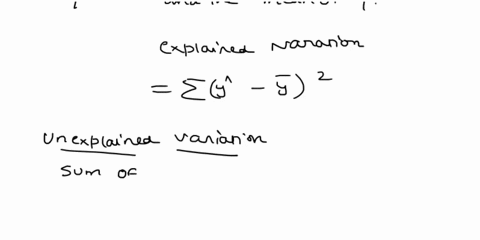 explained nararion
= Σ(y^ - y̅)²
unexplained variarion
sum of